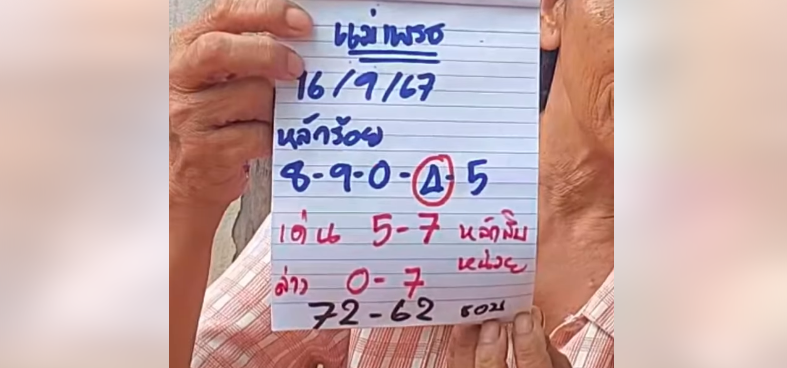 แม่เพรช
16/9/67
หลักร้อย
8-9-0-Δ-5
เด่น 5-7 หลักสิบ
หน่วย
ล่าง 0-7
72-62 รอบ